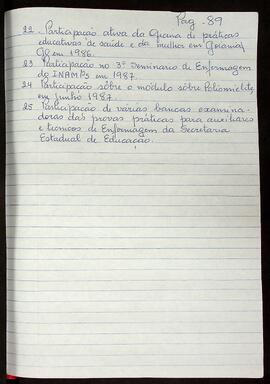 Pag. 89
22. Participação ativa da Oficina de práticas
educativas de saúde e da mulher em Goiania,
GO em 1986.
23 Participação no 3º Seminario de Enfermagem
do INAMPs em 1987.
24 Participação sôbre o módulo sôbre Poliomielite,
em Junho 1987.
25 Participação de várias bancas examina-
doras das provas práticas para auxiliares
e tecnicos de Enfermagem da Secretaria
Estadual de Educação.